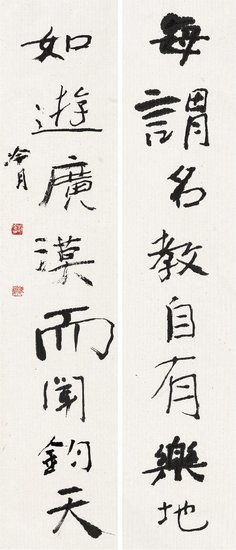 每謂名教自有樂地
如遊廣漠而聞鈞天
冷月